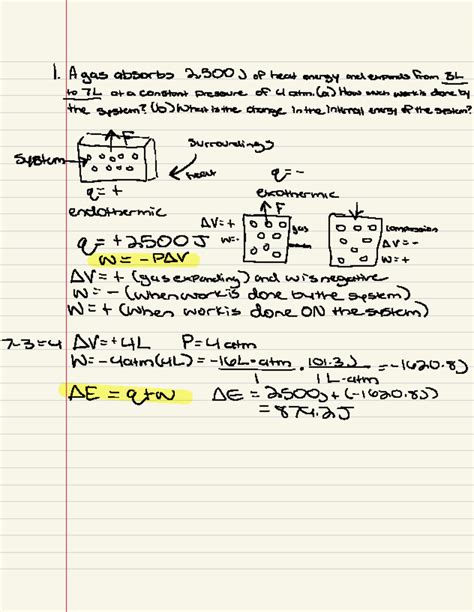 1. A gas absorbs 2,500J of heat energy and expands from 3L
to 7L at a constant pressure of 4 atm. (a) How much work is done by
the system? (b) What is the change in the internal energy of the system?
F
system
surroundings
heat
q= +
endothermic
q= -
exothermic
F
ΔV= +
W= -
gas
compression
ΔV= -
W= +
q= +2500J
W= -PΔV
ΔV= + (gas expanding) and w is negative
W= - (when work is done by the system)
W= + (when work is done ON the system)
7-3=4 ΔV= +4L P= 4 atm
W= -4atm(4L) = -16L·atm/1 · 101.3J/1 L·atm = -1620.8J
ΔE = q+w ΔE = 2500J + (-1620.8J)
= 879.2J